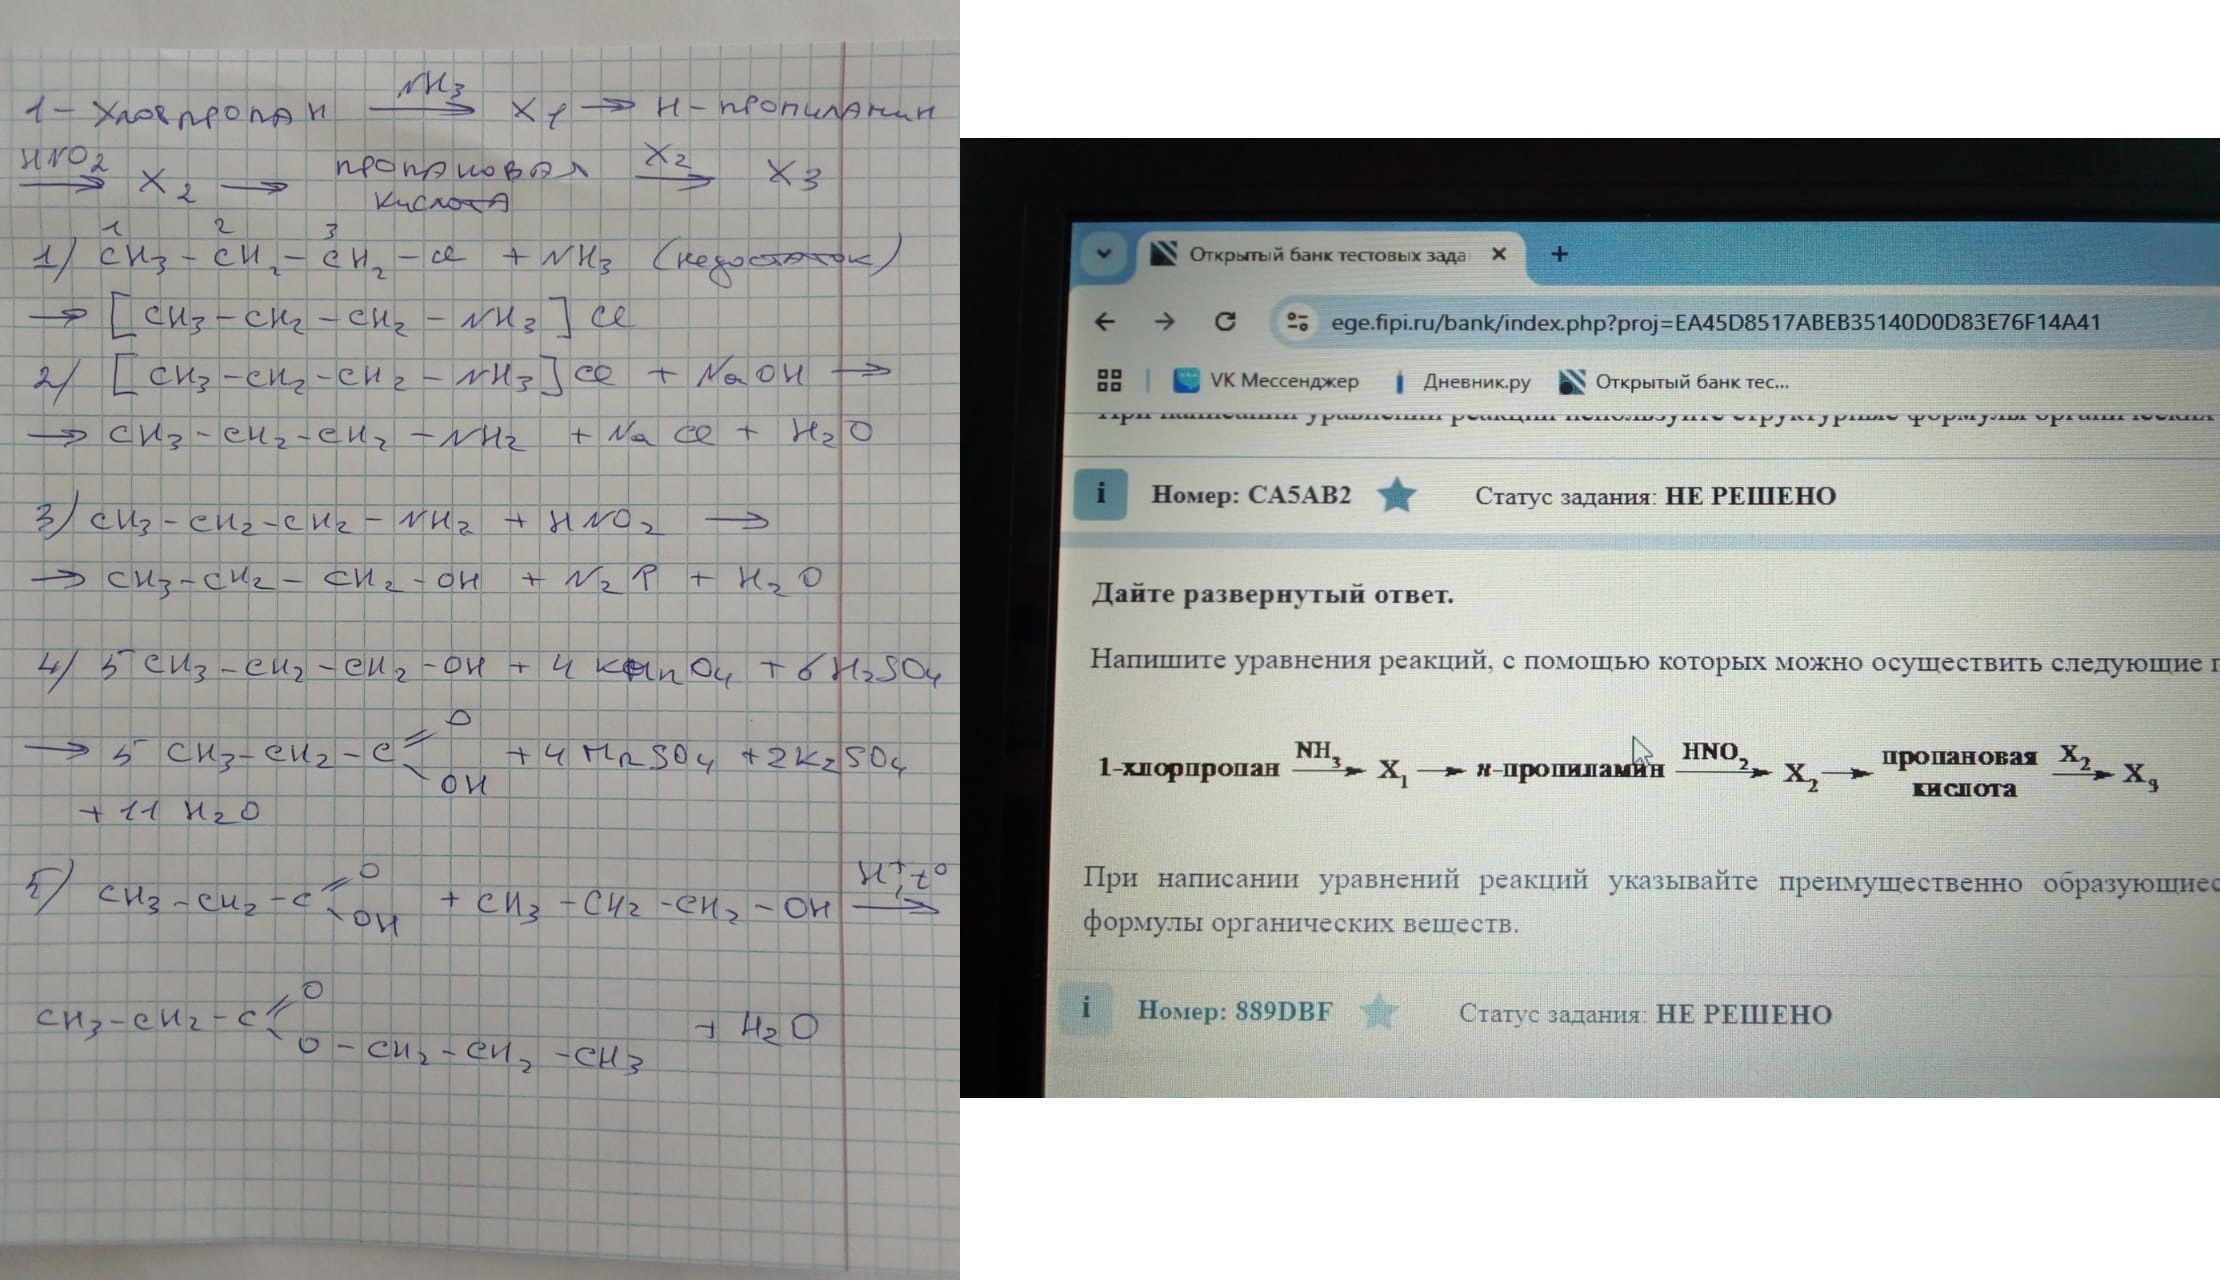 1-хлорпропан NH₃→ X₁ → н-пропиламин
HNO₂→ X₂ → пропановая кислота X₂→ X₃
1 2 3
1) CH₃-CH₂-CH₂-Cl + NH₃ (недостаток)
→ [CH₃-CH₂-CH₂-NH₃]Cl
2) [CH₃-CH₂-CH₂-NH₃]Cl + NaOH →
→ CH₃-CH₂-CH₂-NH₂ + NaCl + H₂O
3) CH₃-CH₂-CH₂-NH₂ + HNO₂ →
→ CH₃-CH₂-CH₂-OH + N₂↑ + H₂O
4) 5CH₃-CH₂-CH₂-OH + 4KMnO₄ + 6H₂SO₄
→ 5CH₃-CH₂-C=O OH + 4MnSO₄ + 2K₂SO₄
+ 11H₂O
5) CH₃-CH₂-C=O OH + CH₃-CH₂-CH₂-OH H⁺, t°→
CH₃-CH₂-C=O O-CH₂-CH₂-CH₃ + H₂O
Открытый банк тестовых зада
ege.fipi.ru/bank/index.php?proj=EA45D8517ABEB35140D0D83E76F14A41
VK Мессенджер Дневник.ру Открытый банк тес...
При написании уравнений реакций используйте структурные формулы органических
i Номер: CA5AB2 Статус задания: НЕ РЕШЕНО
Дайте развернутый ответ.
Напишите уравнения реакций, с помощью которых можно осуществить следующие
1-хлорпропан NH₃→ X₁ → н-пропиламин HNO₂→ X₂ → пропановая кислота X₂→ X₃
При написании уравнений реакций указывайте преимущественно
формулы органических веществ.
i Номер: 889DBF Статус задания: НЕ РЕШЕНО